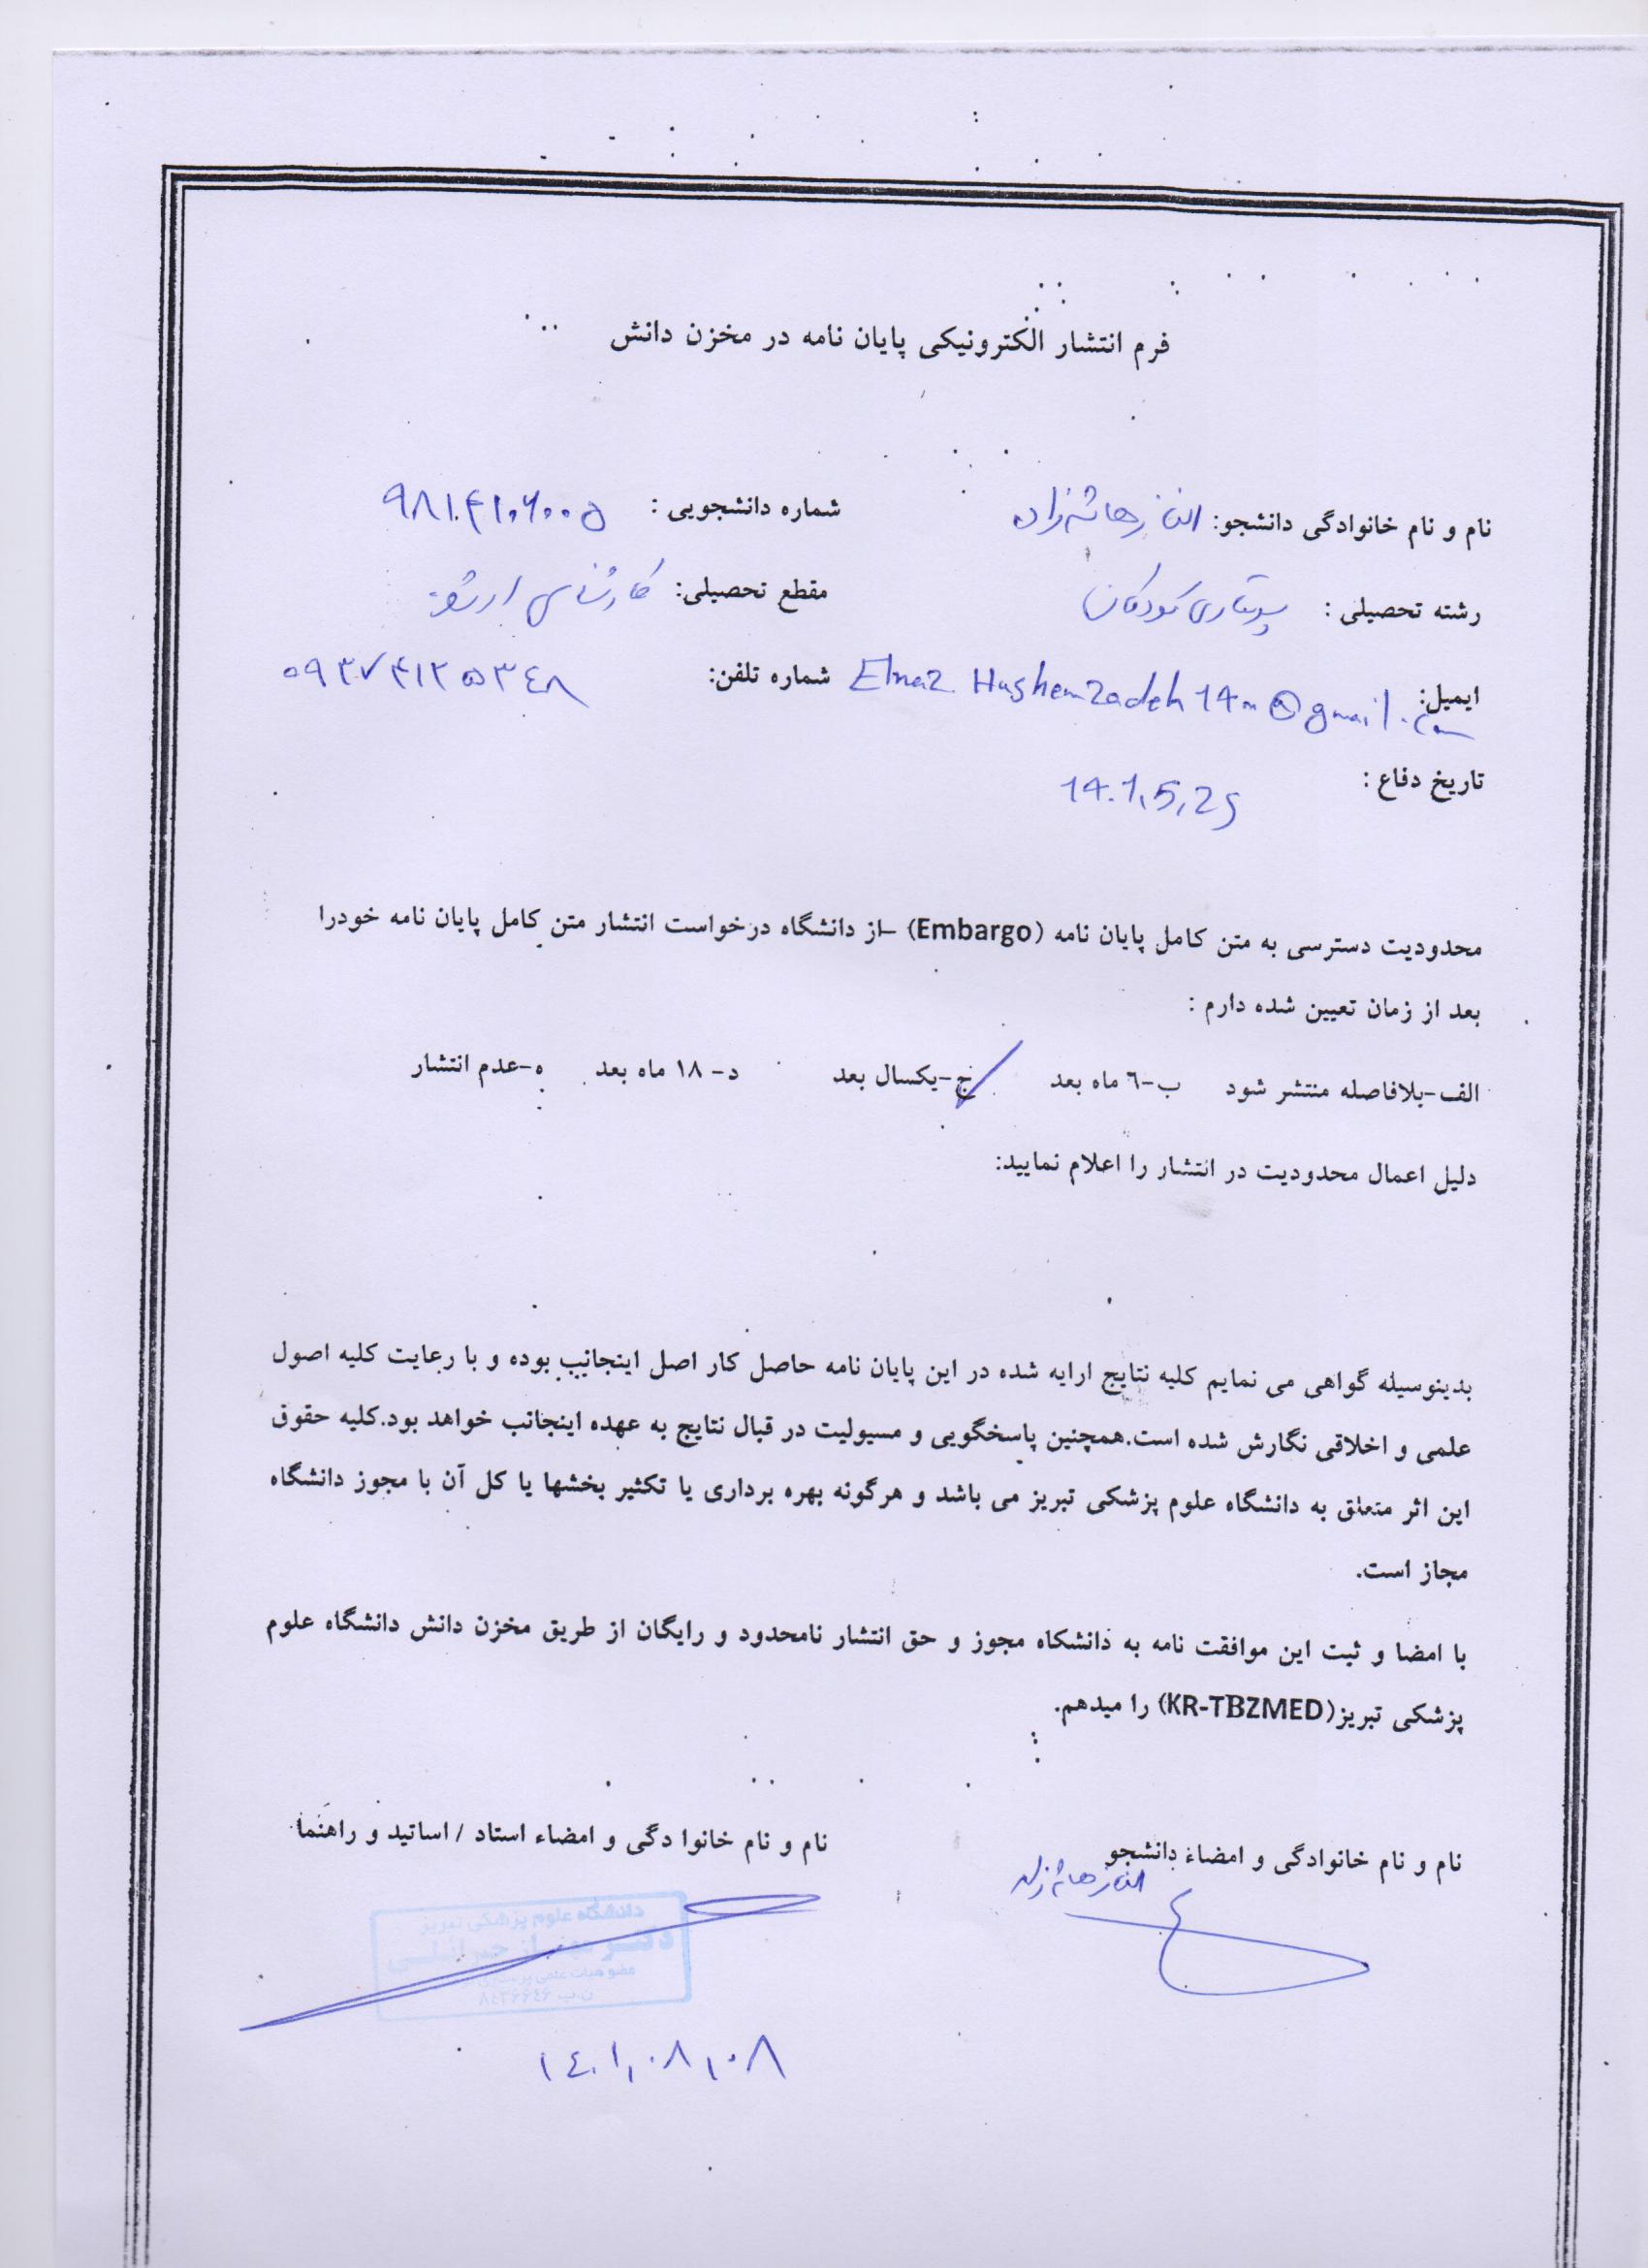 فرم انتشار الکترونیکی پایان نامه در مخزن دانش
نام و نام خانوادگی دانشجو: الناز هاشم زاده شماره دانشجویی :
رشته تحصیلی : پرستاری کودکان مقطع تحصیلی: کارشناسی ارشد
ایمیل: شماره تلفن:
تاریخ دفاع :
محدودیت دسترسی به متن کامل پایان نامه (Embargo) –از دانشگاه درخواست انتشار متن کامل پایان نامه خودرا
بعد از زمان تعیین شده دارم :
الف-بلافاصله منتشر شود ب-٦ ماه بعد ج-یکسال بعد د- ١٨ ماه بعد ه-عدم انتشار
دلیل اعمال محدودیت در انتشار را اعلام نمایید:
بدینوسیله گواهی می نمایم کلیه نتایج ارایه شده در این پایان نامه حاصل کار اصل اینجانب بوده و با رعایت کلیه اصول
علمی و اخلاقی نگارش شده است.همچنین پاسخگویی و مسیولیت در قبال نتایج به عهده اینجانب خواهد بود.کلیه حقوق
این اثر متعلق به دانشگاه علوم پزشکی تبریز می باشد و هرگونه بهره برداری یا تکثیر بخشها یا کل آن با مجوز دانشگاه
مجاز است.
با امضا و ثبت این موافقت نامه به دانشکاه مجوز و حق انتشار نامحدود و رایگان از طریق مخزن دانش دانشگاه علوم
پزشکی تبریز(KR-TBZMED) را میدهم.
نام و نام خانوادگی و امضاء دانشجو نام و نام خانوا دگی و امضاء استاد / اساتید و راهنما
الناز هاشم زاده
دانشگاه علوم پزشکی تبریز
دکتر
عضو هیات علمی
ن.پ
١٤٠١,٠٨,٠٨